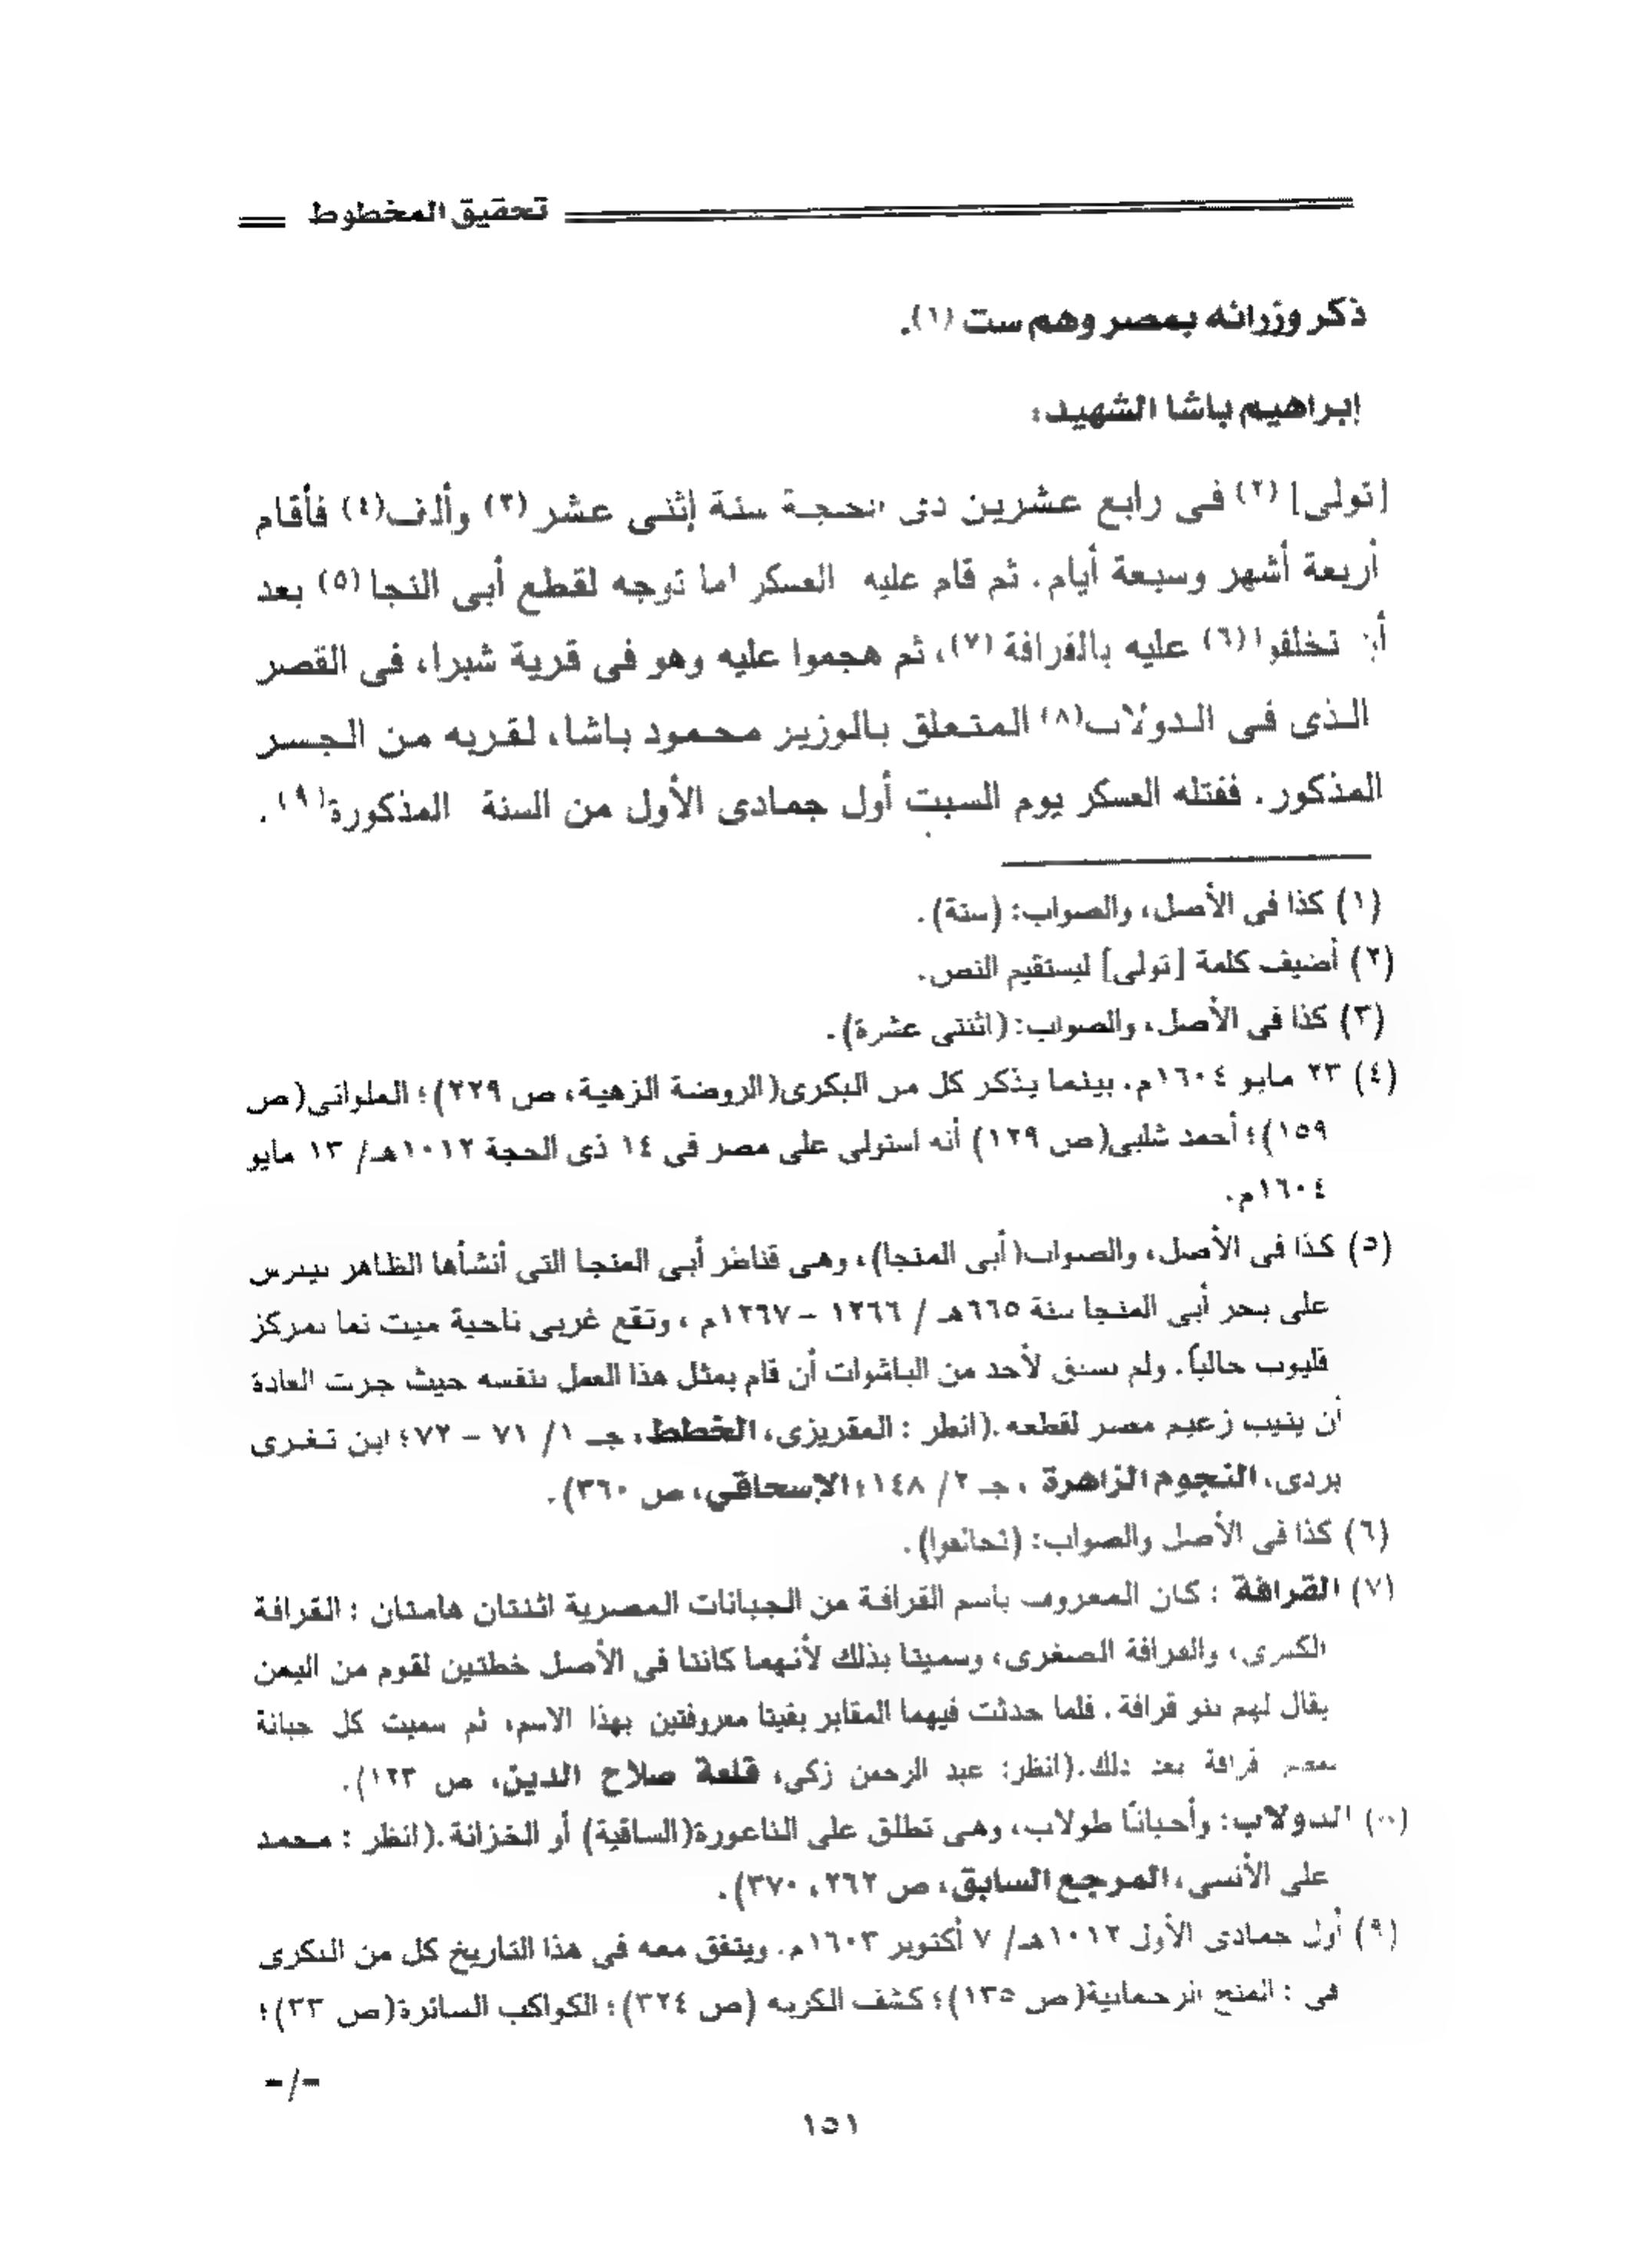 تحقيق المخطوط
ذكر وزرائه بمصر وهم ست (١).
إبراهيم باشا الشهيد:
[تولى] (٢) فى رابع عشرين ذى الحجة سنة إثنى عشر (٣) وألف(٤) فأقام
أربعة أشهر وسبعة أيام. ثم قام عليه العسكر لما توجه لقطع أبى النجا (٥) بعد
أن تخلفوا (٦) عليه بالقرافة (٧)، ثم هجموا عليه وهو فى قرية شبرا، فى القصر
الذى فى الدولاب(٨) المتعلق بالوزير محمود باشا، لقربه من الجسر
المذكور. فقتله العسكر يوم السبت أول جمادى الأول من السنة المذكورة(٩).
(١) كذا فى الأصل، والصواب: (ستة).
(٢) أضيف كلمة [تولى] ليستقيم النص.
(٣) كذا فى الأصل، والصواب: (اثنتى عشرة).
(٤) ٢٣ مايو ١٦٠٤م. بينما يذكر كل من البكرى(الروضة الزهية، ص ٢٢٩)؛ الملوانى(ص
١٥٩)؛ أحمد شلبى(ص ١٢٩) أنه استولى على مصر فى ١٤ ذى الحجة ١٠١٢هـ/ ١٣ مايو
١٦٠٤م.
(٥) كذا فى الأصل، والصواب( أبى المنجا)، وهى قناطر أبى المنجا التى أنشأها الظاهر بيبرس
على بحر أبى المنجا سنة ٦٦٥هـ / ١٢٦٦ – ١٢٦٧م ، وتقع غربى ناحية ميت نما بمركز
قليوب حالياً. ولم يسبق لأحد من الباشوات أن قام بمثل هذا العمل بنفسه حيث جرت العادة
أن ينيب زعيم مصر لقطعه.(انظر : المقريزى، الخطط، جـ ١/ ٧١ – ٧٢؛ ابن تغرى
بردى، النجوم الزاهرة ، جـ ٢/ ١٤٨؛ الإسحاقي، ص ٣٦٠).
(٦) كذا فى الأصل والصواب: (تحالفوا).
(٧) القرافة : كان المعروف باسم القرافة من الجبانات المصرية اثنتان هامتان : القرافة
الكبرى، والقرافة الصغرى، وسميتا بذلك لأنهما كانتا فى الأصل خطتين لقوم من اليمن
يقال لهم بنو قرافة. فلما حدثت فيهما المقابر بقيتا معروفتين بهذا الاسم، ثم سميت كل جبانة
بمصر قرافة بعد ذلك.(انظر: عبد الرحمن زكي، قلعة صلاح الدين، ص ١٢٣).
الدولاب: وأحيانًا طولاب، وهى تطلق على الناعورة(الساقية) أو الخزانة.(انظر : محمد
على الأنسى، المرجع السابق، ص ٢٦٢، ٣٧٠).
(٩) أول جمادى الأول ١٠١٢هـ/ ٧ أكتوبر ١٦٠٣م. ويتفق معه فى هذا التاريخ كل من البكرى
فى : المنح الرحمانية(ص ١٣٥)؛ كشف الكربه (ص ٣٢٤)؛ الكواكب السائرة(ص ٣٣)؛
-/-
١٥١